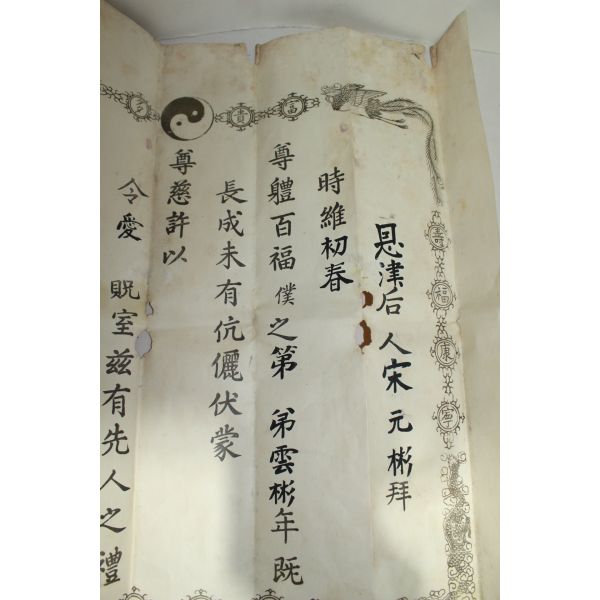 富貴多
壽福康寧
恩津后人宋元彬拜
時維初春
尊體百福僕之第 弟雲彬年既
長成未有伉儷伏蒙
尊慈許以
令愛 貺室玆有先人之禮